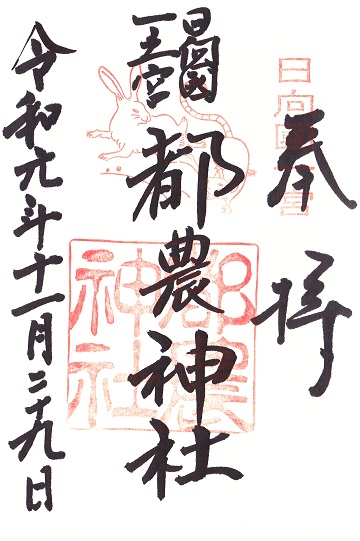 奉拝
日向國一宮
日向國
一之宮
都農神社
都農
神社
令和元年十一月二十九日